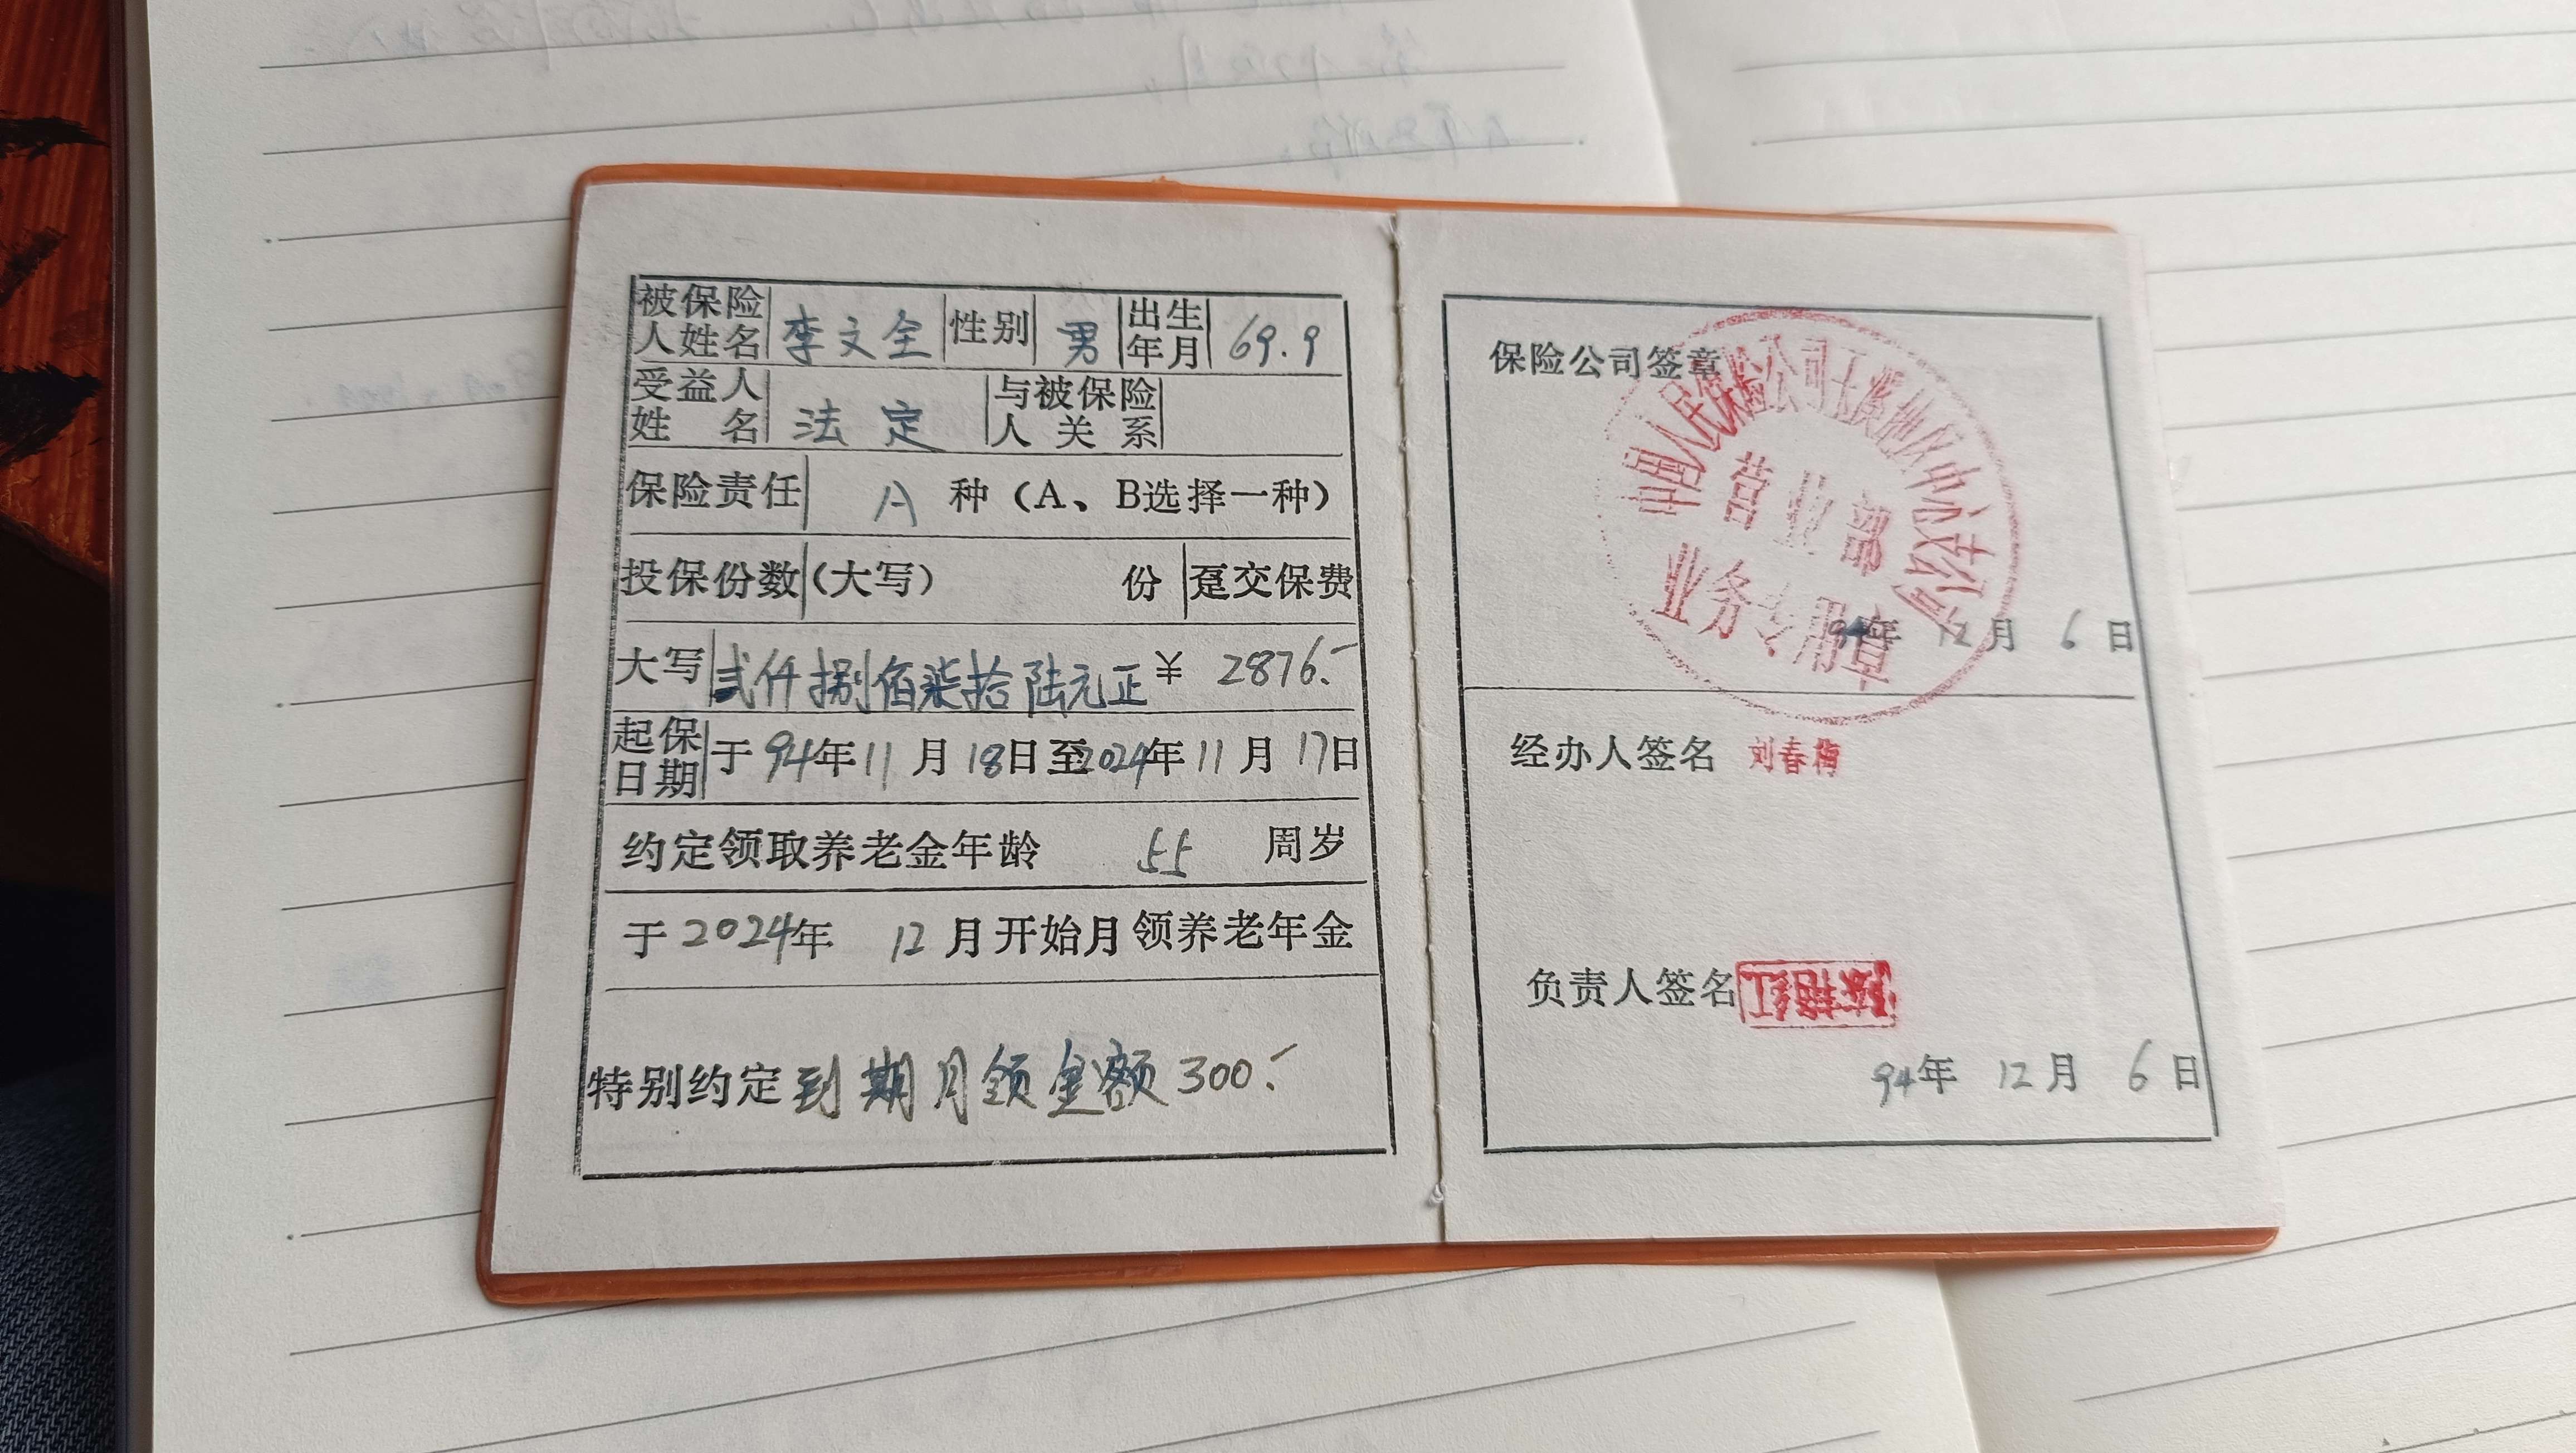 被保险人姓名 李文全 性别 男 出生年月 69.9
受益人姓名 法定 与被保险人关系
保险责任 A 种（A、B选择一种）
投保份数（大写） 份 趸交保费
大写 贰仟捌佰柒拾陆元正 ¥ 2876.-
起保日期 于94年11月18日至2024年11月17日
约定领取养老金年龄 55 周岁
于2024年 12月开始月领养老年金
特别约定 到期月领金额300.-
保险公司签章
中国人民保险公司
营业部
业务专用章
94年 12月 6日
经办人签名 刘春梅
负责人签名
94年 12月 6日